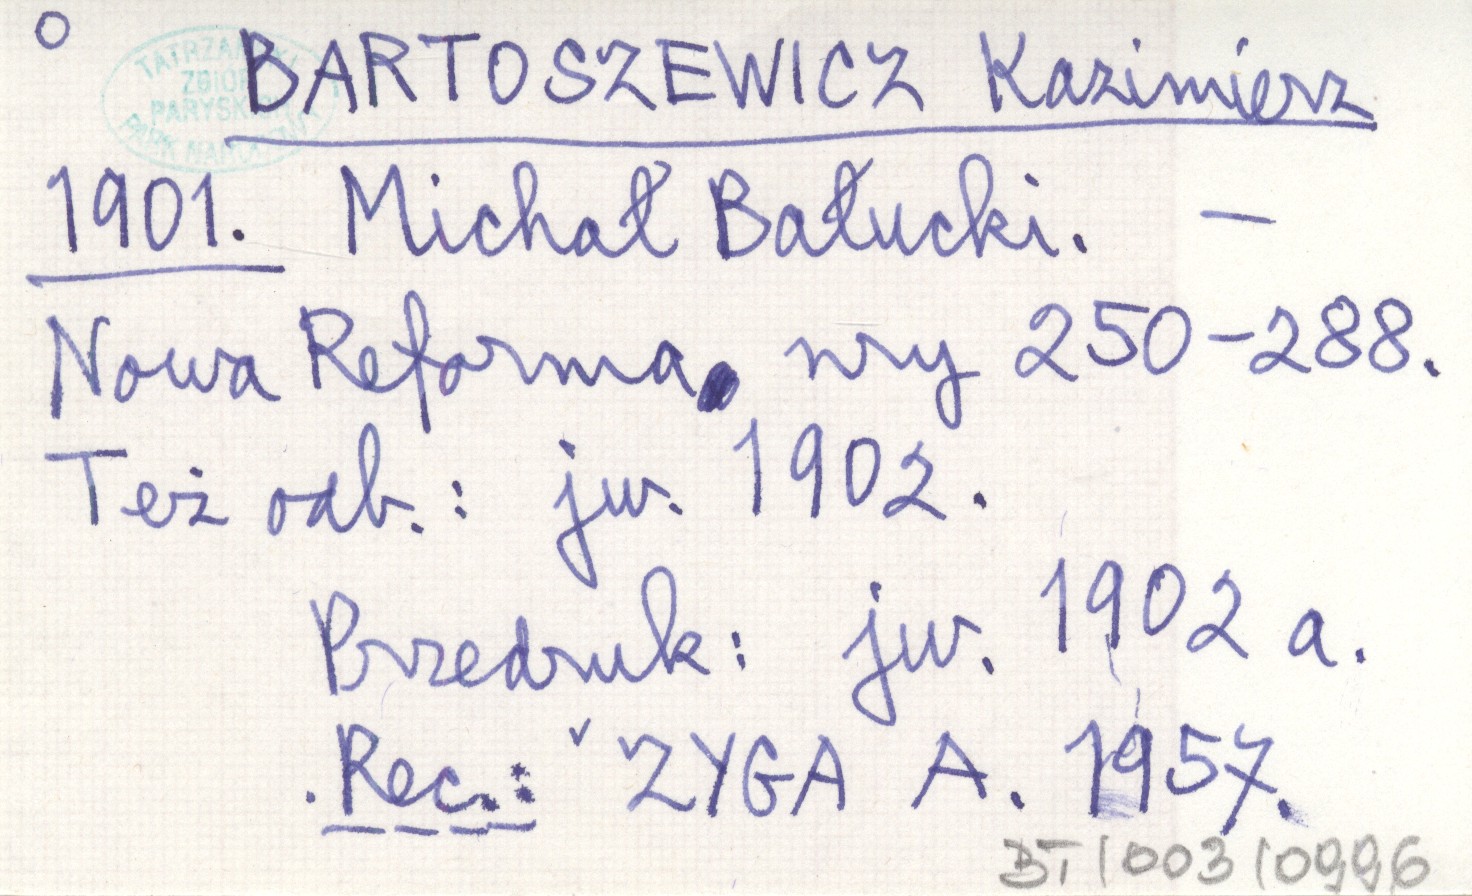 TATRZAŃSKI
ZBIORY
PARYSKICH
PARK NARODOWY
BARTOSZEWICZ Kazimierz
1901. Michał Bałucki. —
Nowa Reforma, nry 250-288.
Też odb.: jw. 1902.
Przedruk: jw. 1902 a.
Rec.: ZYGA A. 1957.
BT/003/0996